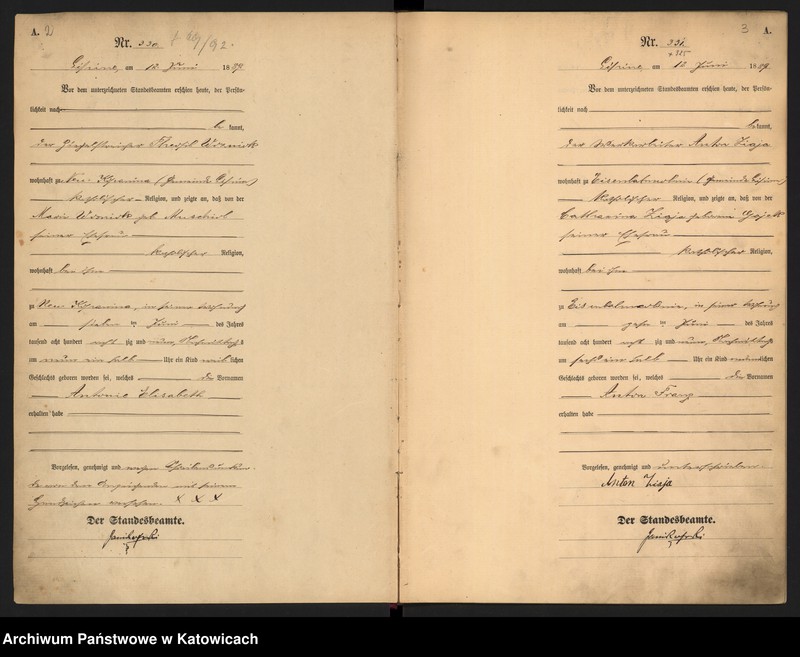 A. 2
Nr. 330. + 69/92.
am 12 Juni 1889
Vor dem unterzeichneten Standesbeamten erschien heute, der Persön-
lichkeit nach
be kannt,
der
wohnhaft zu Neu
katholischer Religion, und zeigte an, daß von der
Marie geb
seiner Ehefrau
katholischer Religion,
wohnhaft bei ihm
zu Neu in seiner Wohnung
am sieben ten Juni des Jahres
tausend acht hundert acht zig und neun, Nachmittags
um neun ein halb Uhr ein Kind weib lichen
Geschlechts geboren worden sei, welches die Vornamen
Antonie Elisabeth
erhalten habe
Vorgelesen, genehmigt und wegen
von dem mit seinem
versehen. X X X
Der Standesbeamte.
3 A.
Nr. 331.
am 12 Juni 1889
Vor dem unterzeichneten Standesbeamten erschien heute, der Persön-
lichkeit nach
be kannt,
der Anton Ziaja
wohnhaft zu
katholischer Religion, und zeigte an, daß von der
Catharina Ziaja geborene
seiner Ehefrau
katholischer Religion,
wohnhaft bei ihm
zu in seiner Wohnung
am zehn ten Juni des Jahres
tausend acht hundert acht zig und neun, Nachmittags
um sechs ein halb Uhr ein Kind männlichen
Geschlechts geboren worden sei, welches die Vornamen
Anton Franz
erhalten habe
Vorgelesen, genehmigt und unterschrieben
Anton Ziaja
Der Standesbeamte.
Archiwum Państwowe w Katowicach